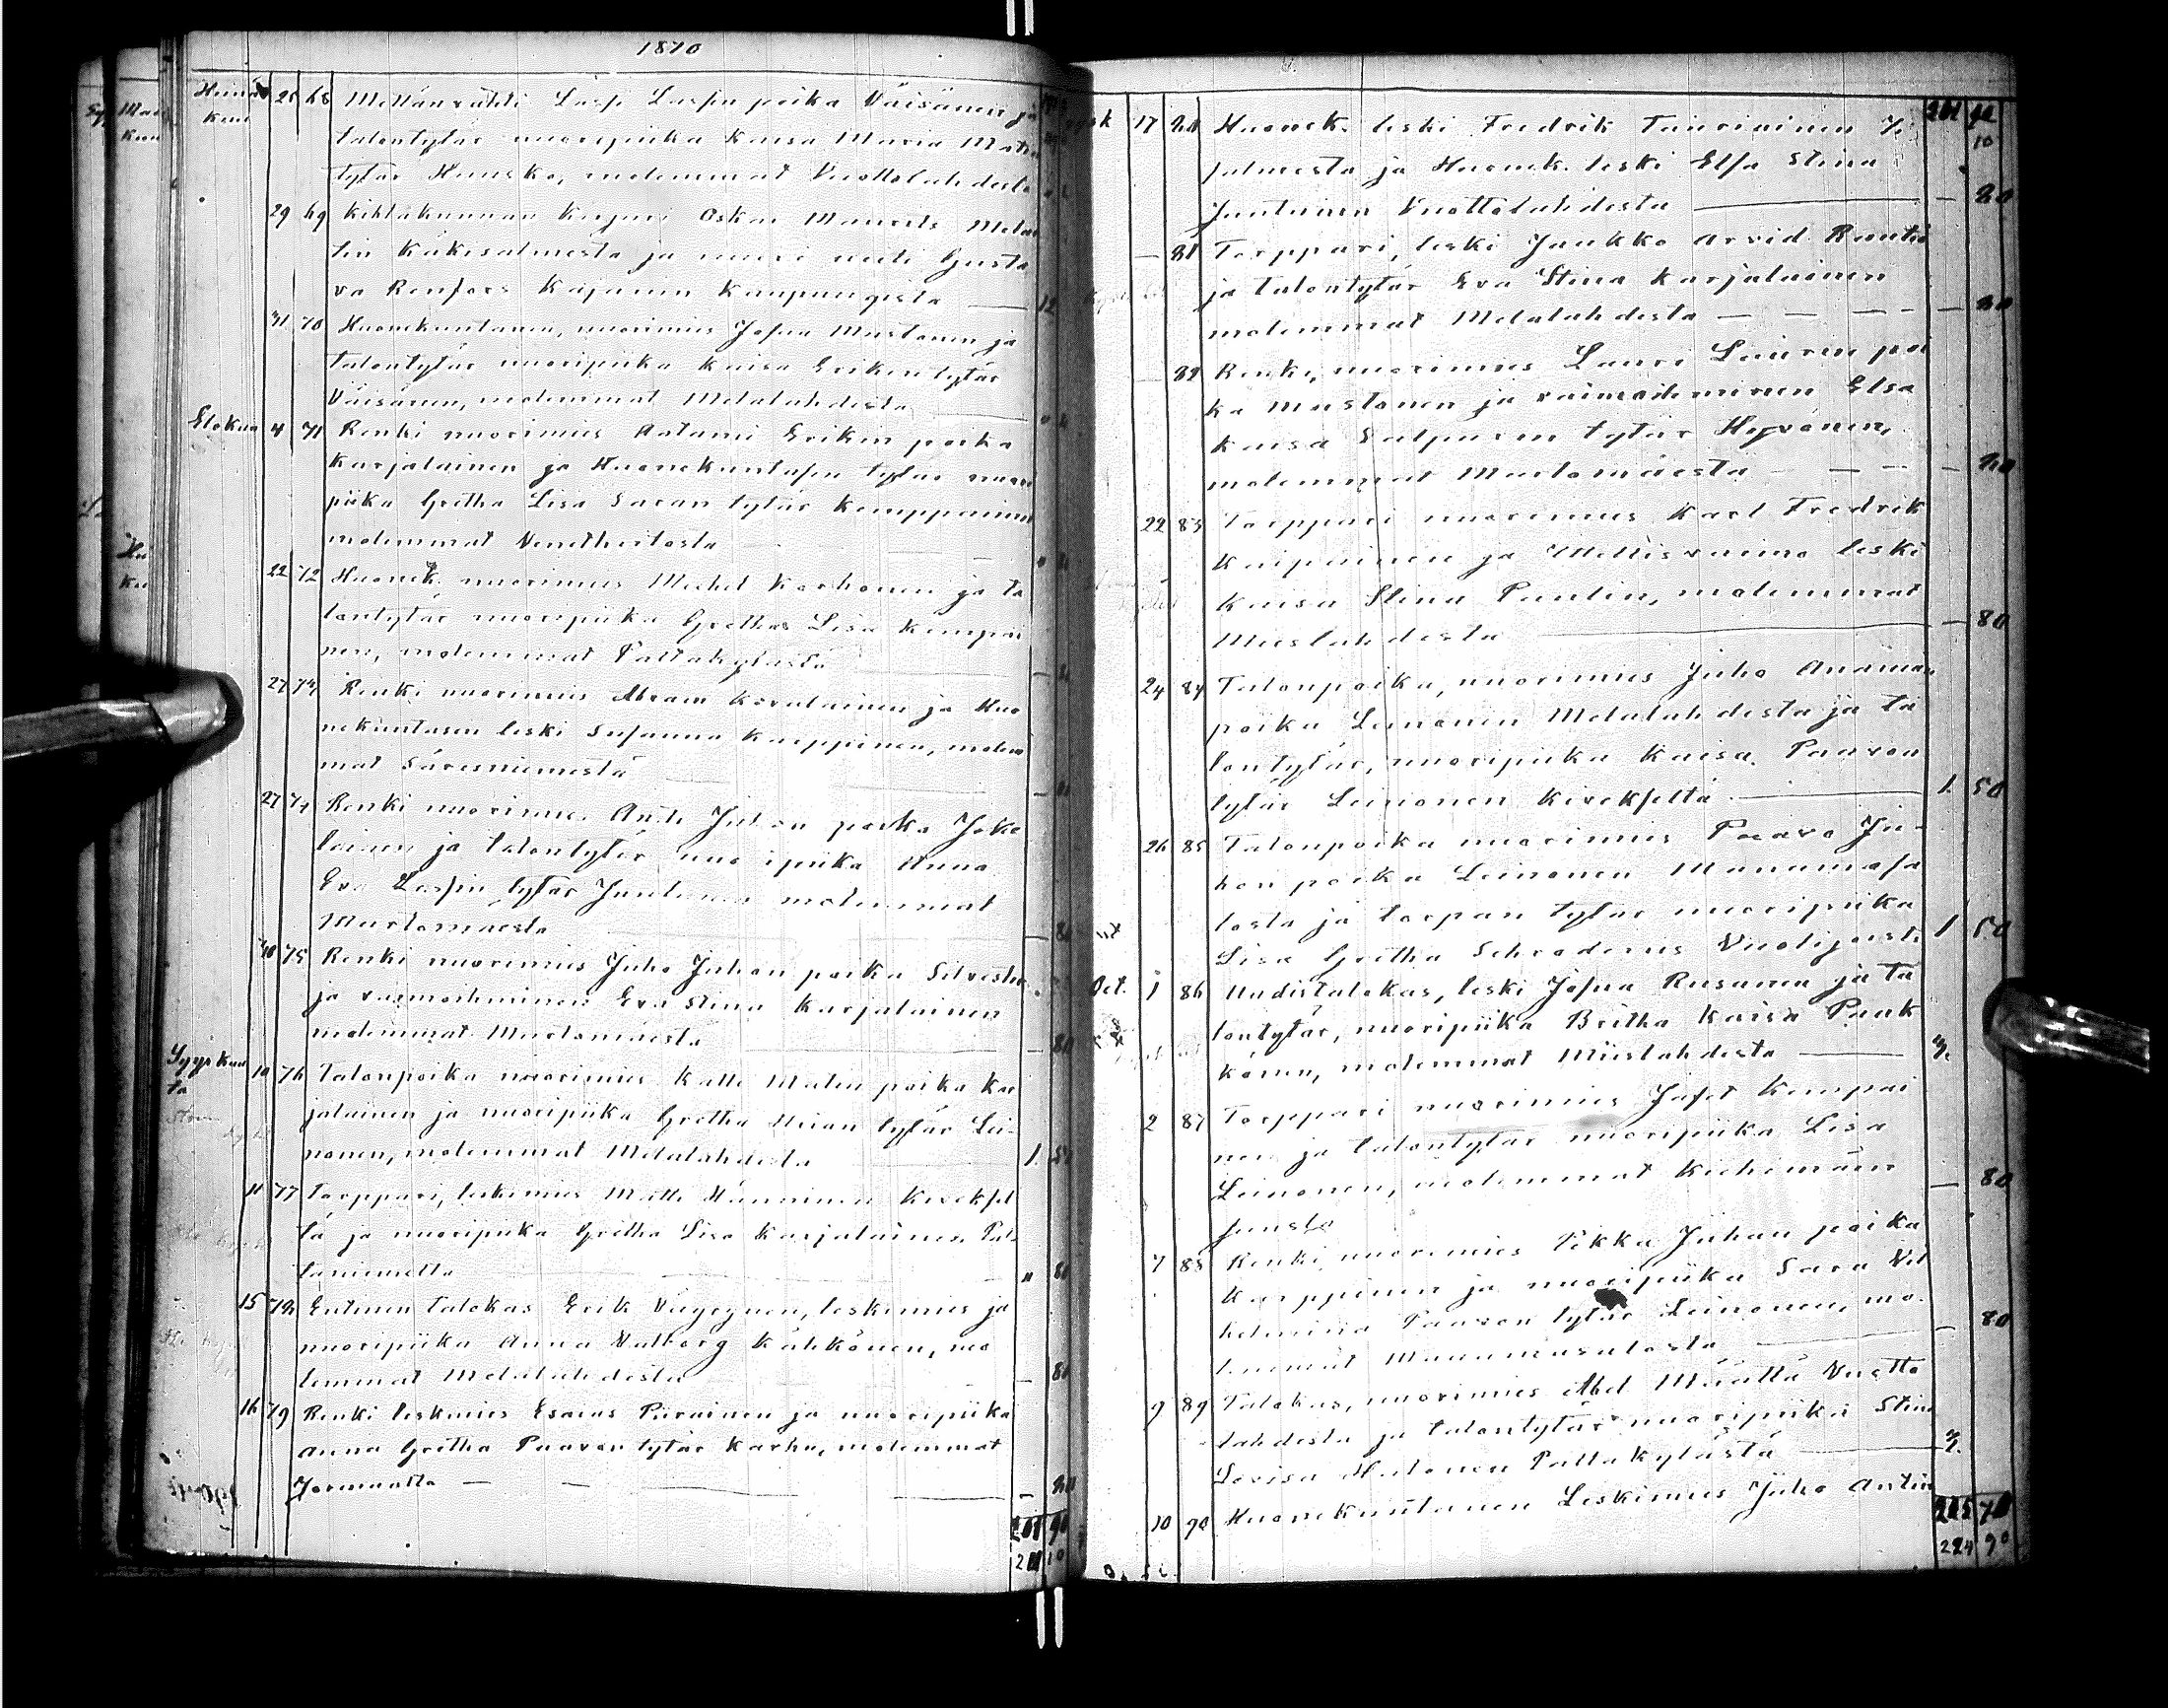 1870
Heinä kuu 28 68 Mettänvahti Lasse Lassen poika Väisänen ja
talontytär nuoripiika Kaisa Maria Matin
tytär Huusko, molemmat Vuottolahdesta
29 69 Kihlakunnan kirjuri Oskar Maurits Melar
tin Käkisalmesta ja neiti Gusta
va Renfors Kajanin Kaupungista — 12
31 70 Huonekuntanen, nuorimies Josua Mustonen ja
talontytär nuoripiika Kaisa Erikintytär
Väisänen, molemmat Melalahdesta
Elokuu 4 71 Renki nuorimies Aatami Erikin poika
Karjalainen ja Huonekuntasen tytär nuori
piika Gretha Lisa Saran tytär Kemppainen
molemmat Venetheitosta
22 72 Huonek. nuorimies Michel Karhonen ja ta
lontytär nuoripiika Gretha Lisa Kempai
nen, molemmat Paltakylästä
27 73 Renki nuorimies Abram Kovalainen ja Huo
nekuntasen leski Susanna Karppinen, molem
mat Säresniemestä
27 74 Renki nuorimies Antti Juhon poika Joke
lainen ja talontytär nuoripiika Anna
Eva Lassin tytär Juntunen molemmat
Murtomäestä — 80
30 75 Renki nuorimies Juho Juhon poika
ja vaimoihminen Eva Stina Karjalainen
molemmat Murtomäestä — 80
Syyskuu
ta
10 76 Talonpoika nuorimies Kalle Matin poika Kar
jalainen ja nuoripiika Gretha Heian tytär Lei-
nonen, molemmat Melalahdesta 1. 50
11 77 Torppari, leskimies Matti Hänninen Kivekses
tä ja nuoripiika Gretha Lisa Karjalainen Pal-
taniemeltä " 80
15 78 Entinen talokas Erik Väyrynen, leskimies ja
nuoripiika Anna Valborg Kähkönen, mo
lemmat Melalahdesta — 80
16 79 Renki leskimies Esaias Piirainen ja nuoripiika
Anna Gretha Paavon tytär Karhu, molemmat
Jormuasta — 80
201 90
211 10
17 80 Huonek. leski Fredrik Tauriainen
salmesta ja Huonek. leski Elsa Stina
Juntunen Vuottolahdesta — 80
— 81 Torppari, leski Jaakko Arvid Rautio
ja talontytär Eva Stina Karjalainen
molemmat Melalahdesta — 80
82 Renki, nuorimies Lauri Laurin poi
ka Mustonen ja vaimoihminen Elsa
Kaisa Valpurin tytär Hyvönen,
molemmat Murtomäestä — 80
22 83 Torppari nuorimies Karl Fredrik
Kaipainen ja Mettisvaimo leski
Kaisa Stina Pantin, molemmat
Mieslahdesta — 80
24 84 Talonpoika, nuorimies Juho Anaman
poika Leinonen Melalahdesta ja ta
lontytär, nuoripiika Kaisa Paavon
tytär Leinonen Kiveksestä 1. 50
26 85 Talonpoika nuorimies Paavo Ju-
hon poika Leinonen Manamasa
losta ja torpan tytär nuoripiika
Lisa Gretha Schroderus Vuolijoesta 1 50
Oct. 1 86 Uudistalokas, leski Josua Rusanen ja ta
lontytär, nuoripiika Britha Kaisa Pääk
könen, molemmat Mieslahdesta
2 87 Torppari nuorimies Jafet Kempai
nen ja talontytär nuoripiika Lisa
Leinonen, molemmat Kiehimäen
suusta — 80
7 88 Renki, nuorimies Pekka Juhan poika
Karppinen ja nuoripiika Sara Vil
helmina Paavon tytär Leinonen, mo-
lemmat Manamansalosta — 80
9 89 Talokas, nuorimies Abel Määttä Vuotto
lahdesta ja talontytär nuoripiika Stina
Lovisa Heitonen Paltakylästä
10 90 Huonekuntanen Leskimies Juho Antin
215 70
224 90